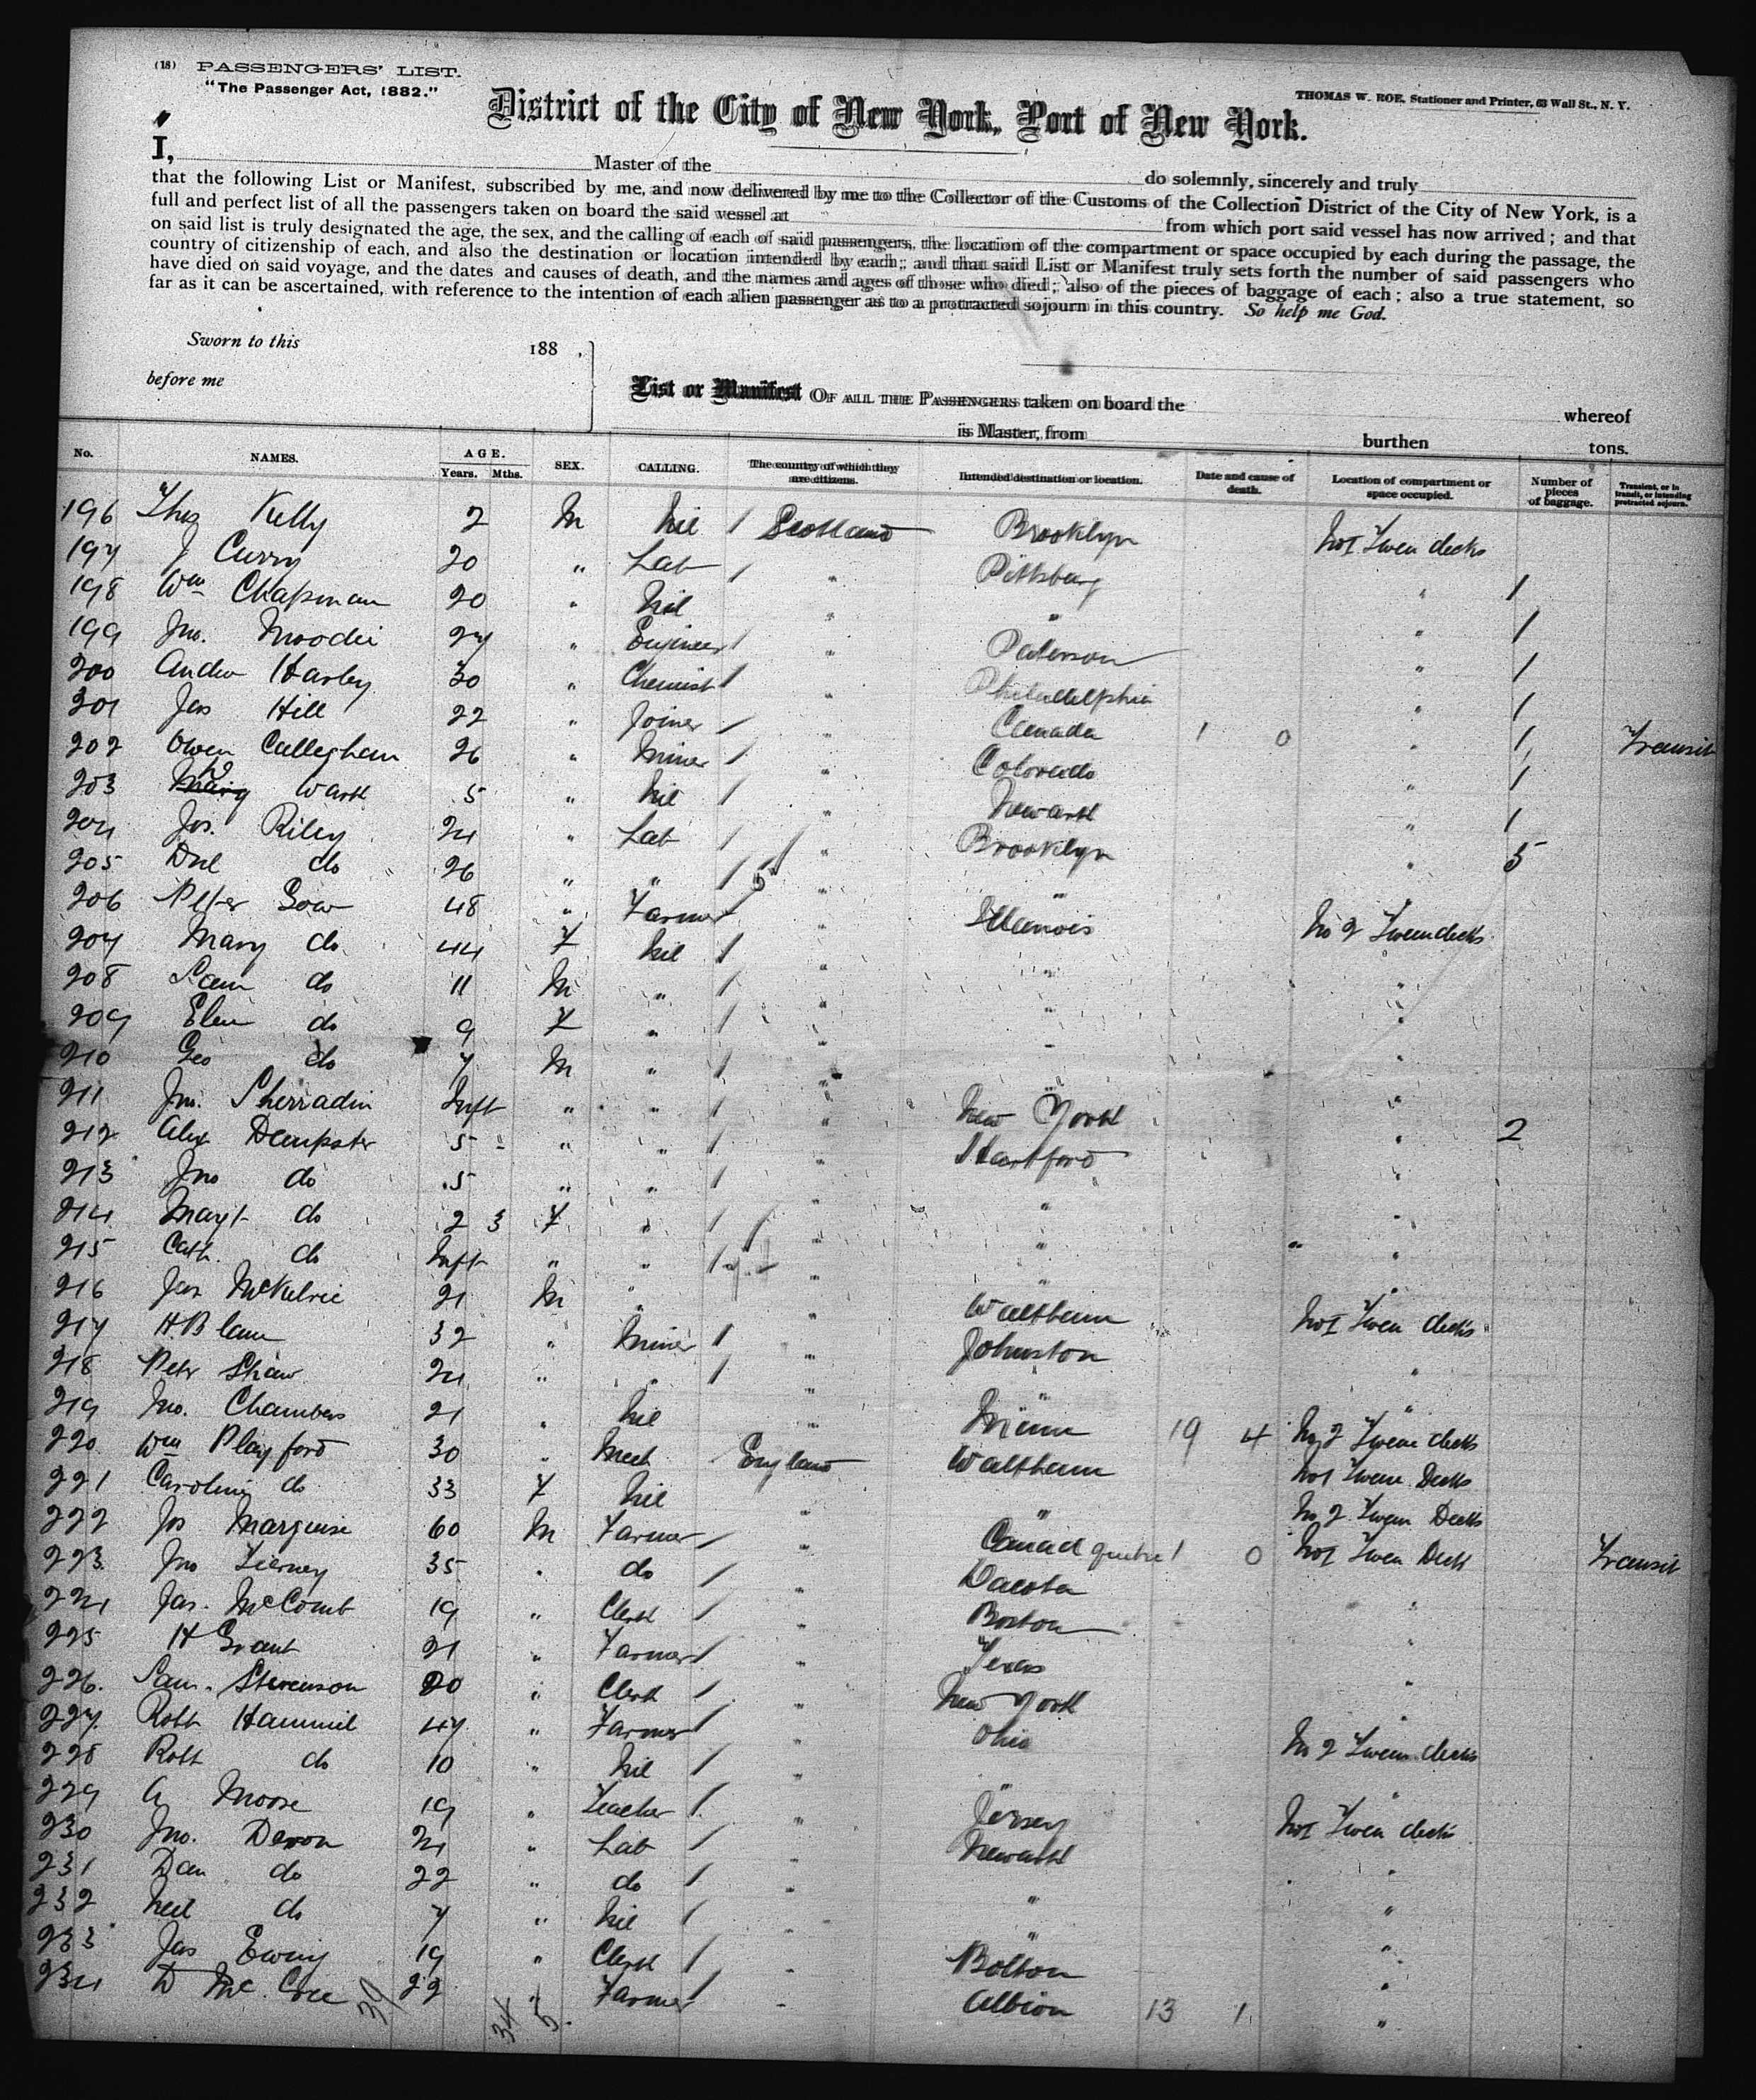 (18) PASSENGERS' LIST.
"The Passenger Act, 1882."
THOMAS W. ROE, Stationer and Printer, 63 Wall St., N. Y.
District of the City of New York, Port of New York.
I, Master of the do solemnly, sincerely and truly
that the following List or Manifest, subscribed by me, and now delivered by me to the Collector of the Customs of the Collection District of the City of New York, is a
full and perfect list of all the passengers taken on board the said vessel at from which port said vessel has now arrived; and that
on said list is truly designated the age, the sex, and the calling of each of said passengers, the location of the compartment or space occupied by each during the passage, the
country of citizenship of each, and also the destination or location intended by each; and that said List or Manifest truly sets forth the number of said passengers who
have died on said voyage, and the dates and causes of death, and the names and ages of those who died; also of the pieces of baggage of each; also a true statement, so
far as it can be ascertained, with reference to the intention of each alien passenger as to a protracted sojourn in this country. So help me God.
Sworn to this 188 ,
before me
List or Manifest OF ALL THE PASSENGERS taken on board the whereof
is Master, from burthen tons.
No. NAMES. AGE. Years. Mths. SEX. CALLING. The country of which they are citizens. Intended destination or location. Date and cause of death. Location of compartment or space occupied. Number of pieces of baggage. Transient, or in transit, or intending protracted sojourn.
196 Thos Kelly 2 M Nil / Scotland Brooklyn No I Tween decks
197 J Curry 20 " Lab / " Pittsburg " 1
198 Wm Chapman 20 " Nil " " " 1
199 Jno. Moodie 27 " Engineer / " Paterson " 1
200 Andw Harley 30 " Chemist / " Philadelphia " 1
201 Jas Hill 22 " Joiner / " Canada 1 0 " 1 Transit
202 Owen Calleghan 26 " Miner / " Colorado " 1
203 Wark 5 " Nil / " Newark " 1
204 Jas. Riley 24 " Lab / " Brooklyn " 5
205 Dnl do 26 " " / " " "
206 Peter Gow 48 " Farmer / " Illanois No 2 Tween decks
207 Mary do 44 F Nil / " " "
208 Sam do 11 M " / " " "
209 Elen do 9 F " / " " "
210 Geo do 7 M " / " " "
211 Jno. Sherradin Inft " " / " New York " 2
212 Alex Dempster 5 " " / " Hartford "
213 Jno do 5 " " / " " "
214 Magt do 2 3 F " / " " "
215 Cath. do Inft " " / " " "
216 Jas McKelvie 21 M " " Waltham No I Tween decks
217 H. Blam 32 " Miner / " Johnston "
218 Petr Shaw 24 " " / " " "
219 Jno. Chambers 21 " Nil " Minn 19 4 No 2 Tween decks
220 Wm Playford 30 " Mech England Waltham No I Tween Decks
221 Caroline do 33 F Nil " " No 2 Tween Decks
222 Jos Marquise 60 M Farmer / " Canad Quebec 1 0 No I Tween Deck Transit
223 Jno Tierney 35 " do / " Dacota "
224 Jas. McComb 19 " Clerk / " Boston "
225 H Grant 21 " Farmer / " Texas "
226. Sam. Stevenson 20 " Clerk / " New York "
227. Robt Hammil 47 " Farmer / " Ohio No 2 Tween decks
228 Robt do 10 " Nil / " " "
229 A Moore 19 " Teacher / " Jersey No I Tween decks
230 Jno. Devon 21 " Lab / " Newark "
231 Dan do 22 " do / " " "
232 Neil do 7 " Nil / " " "
233 Jas Ewing 19 " Clerk / " Bolton "
234 D McCree 22 " Farmer / " Albion 13 1 "
39 34 5